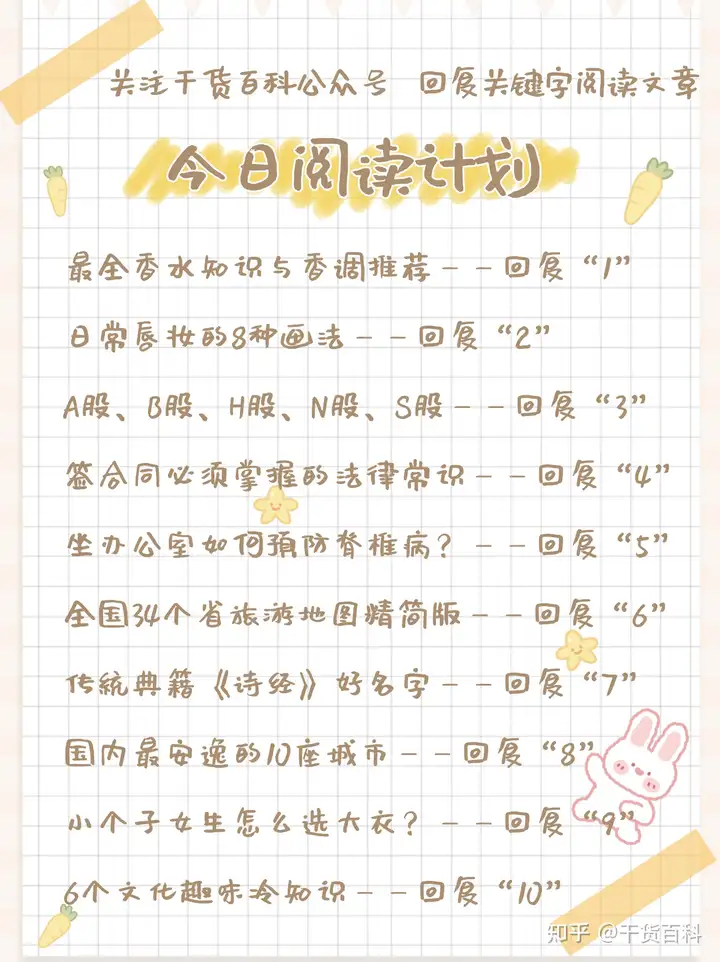 关注干货百科公众号 回复关键字阅读文章
今日阅读计划
最全香水知识与香调推荐--回复“1”
日常唇妆的8种画法--回复“2”
A股、B股、H股、N股、S股--回复“3”
签合同必须掌握的法律常识--回复“4”
坐办公室如何预防脊椎病？--回复“5”
全国34个省旅游地图精简版--回复“6”
传统典籍《诗经》好名字--回复“7”
国内最安逸的10座城市--回复“8”
小个子女生怎么选大衣？--回复“9”
6个文化趣味冷知识--回复“10”
知乎 @干货百科